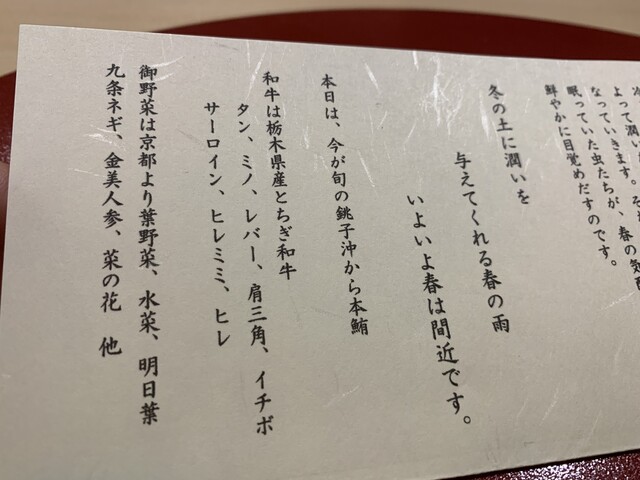 よって潤い
なっていきます。
眠っていた虫たちが、春の気配
鮮やかに目覚めだすのです。
冬の土に潤いを
与えてくれる春の雨
いよいよ春は間近です。
本日は、今が旬の銚子沖から本鮪
和牛は栃木県産とちぎ和牛
タン、ミノ、レバー、肩三角、イチボ
サーロイン、ヒレミミ、ヒレ
御野菜は京都より葉野菜、水菜、明日葉
九条ネギ、金美人参、菜の花 他